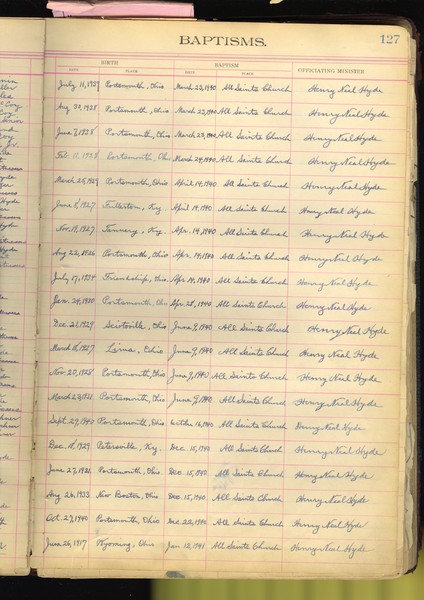 BAPTISMS. 127
BIRTH BAPTISM OFFICIATING MINISTER
DATE PLACE DATE PLACE
July 11, 1937 Portsmouth, Ohio March 22, 1940 All Saints Church Henry Neal Hyde
Aug 30, 1938 Portsmouth, Ohio March 23, 1940 All Saints Church Henry Neal Hyde
June 7, 1938 Portsmouth, Ohio March 23, 1940 All Saints Church Henry Neal Hyde
Feb. 11, 1928 Portsmouth, Ohio March 24, 1940 All Saints Church Henry Neal Hyde
March 25, 1929 Portsmouth, Ohio April 14, 1940 All Saints Church Henry Neal Hyde
June 8, 1927 Fullerton, Ky. April 14, 1940 All Saints Church Henry Neal Hyde
Nov. 18, 1927 Ky. Apr. 14, 1940 All Saints Church Henry Neal Hyde
Aug 22, 1926 Portsmouth, Ohio Apr. 14, 1940 All Saints Church Henry Neal Hyde
July 17, 1924 Friendship, Ohio Apr. 14, 1940 All Saints Church Henry Neal Hyde
Jan. 24, 1930 Portsmouth Ohio Apr 28, 1940 All Saints Church Henry Neal Hyde
Dec 21, 1929 Sciotoville, Ohio June 9, 1940 All Saints Church Henry Neal Hyde
March 18, 1927 Lima, Ohio June 9, 1940 All Saints Church Henry Neal Hyde
Nov. 20, 1928 Portsmouth, Ohio June 9, 1940 All Saints Church Henry Neal Hyde
March 23, 1921 Portsmouth, Ohio June 9, 1940 All Saints Church Henry Neal Hyde
Sept. 29, 1940 Portsmouth, Ohio October 16, 1940 All Saints Church Henry Neal Hyde
Dec. 18, 1929 Ky. Dec. 15, 1940 All Saints Church Henry Neal Hyde
June 27, 1931 Portsmouth, Ohio Dec. 15, 1940 All Saints Church Henry Neal Hyde
Aug 26, 1933 New Boston, Ohio Dec. 15, 1940 All Saints Church Henry Neal Hyde
Oct. 27, 1940 Portsmouth, Ohio Dec 22, 1940 All Saints Church Henry Neal Hyde
June 26, 1917 Wyoming, Ohio Jan. 12, 1941 All Saints Church Henry Neal Hyde